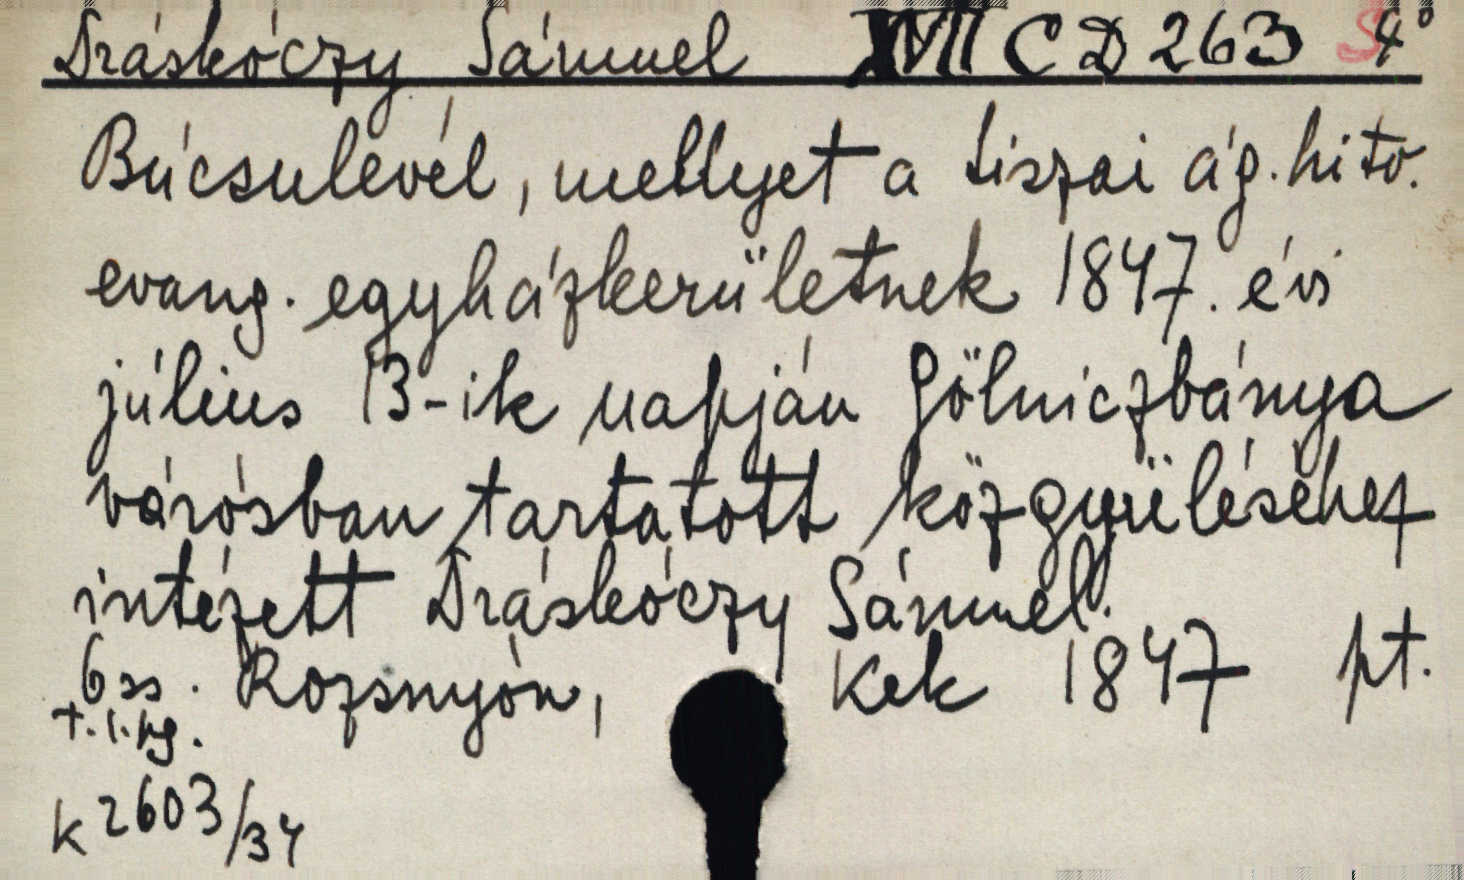 Dráskóczy Sámuel XVII C D 263 S 4°
Búcsulevél, mellyet a tiszai ág. hitv.
evang. egyházkerületnek 1847. évi
július 13-ik napján Gölniczbánya
városban tartatott közgyüléséhez
intézett Dráskóczy Sámuel.
6 ss. Rozsnyón, Kek 1847 pt.
K 2603/34